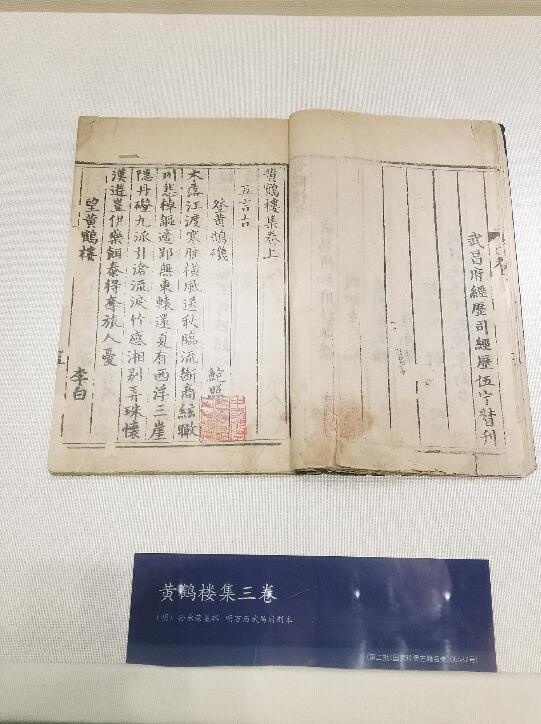 武昌府經歷司經歷伍宁督刊
黃鶴樓集卷上
五言古
登黃鵠磯 鮑照
木落江渡寒鴈還風送秋臨流斷商絃瞰
川悲棹謳適郢無東轅還夏有西浮三崖
隱丹磴九派引滄流淚竹感湘別弄珠懷
漢遊豈伊藥餌泰得奪旅人憂
望黃鶴樓 李白
黄鹤楼集三卷
(明) 孙承荣等辑 明万历武昌府刻本
(第二批《国家珍贵古籍名录》05587号)